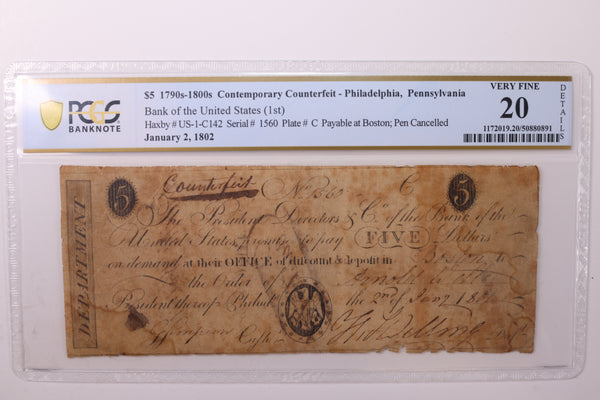 PCGS
BANKNOTE
$5 1790s-1800s Contemporary Counterfeit - Philadelphia, Pennsylvania
Bank of the United States (1st)
Haxby # US-1-C142 Serial # 1560 Plate # C Payable at Boston; Pen Cancelled
January 2, 1802
VERY FINE
20
DETAILS
1172019.20/50880891
5 Counterfeit No. C 5
The President Directors & Co. of the Bank of the
United States, promise to pay FIVE Dollars
on demand at their OFFICE of discount & deposit in Boston to
the Order of
President thereof Philad the 2nd of Jany
Cashr. Presidt
DEPARTMENT